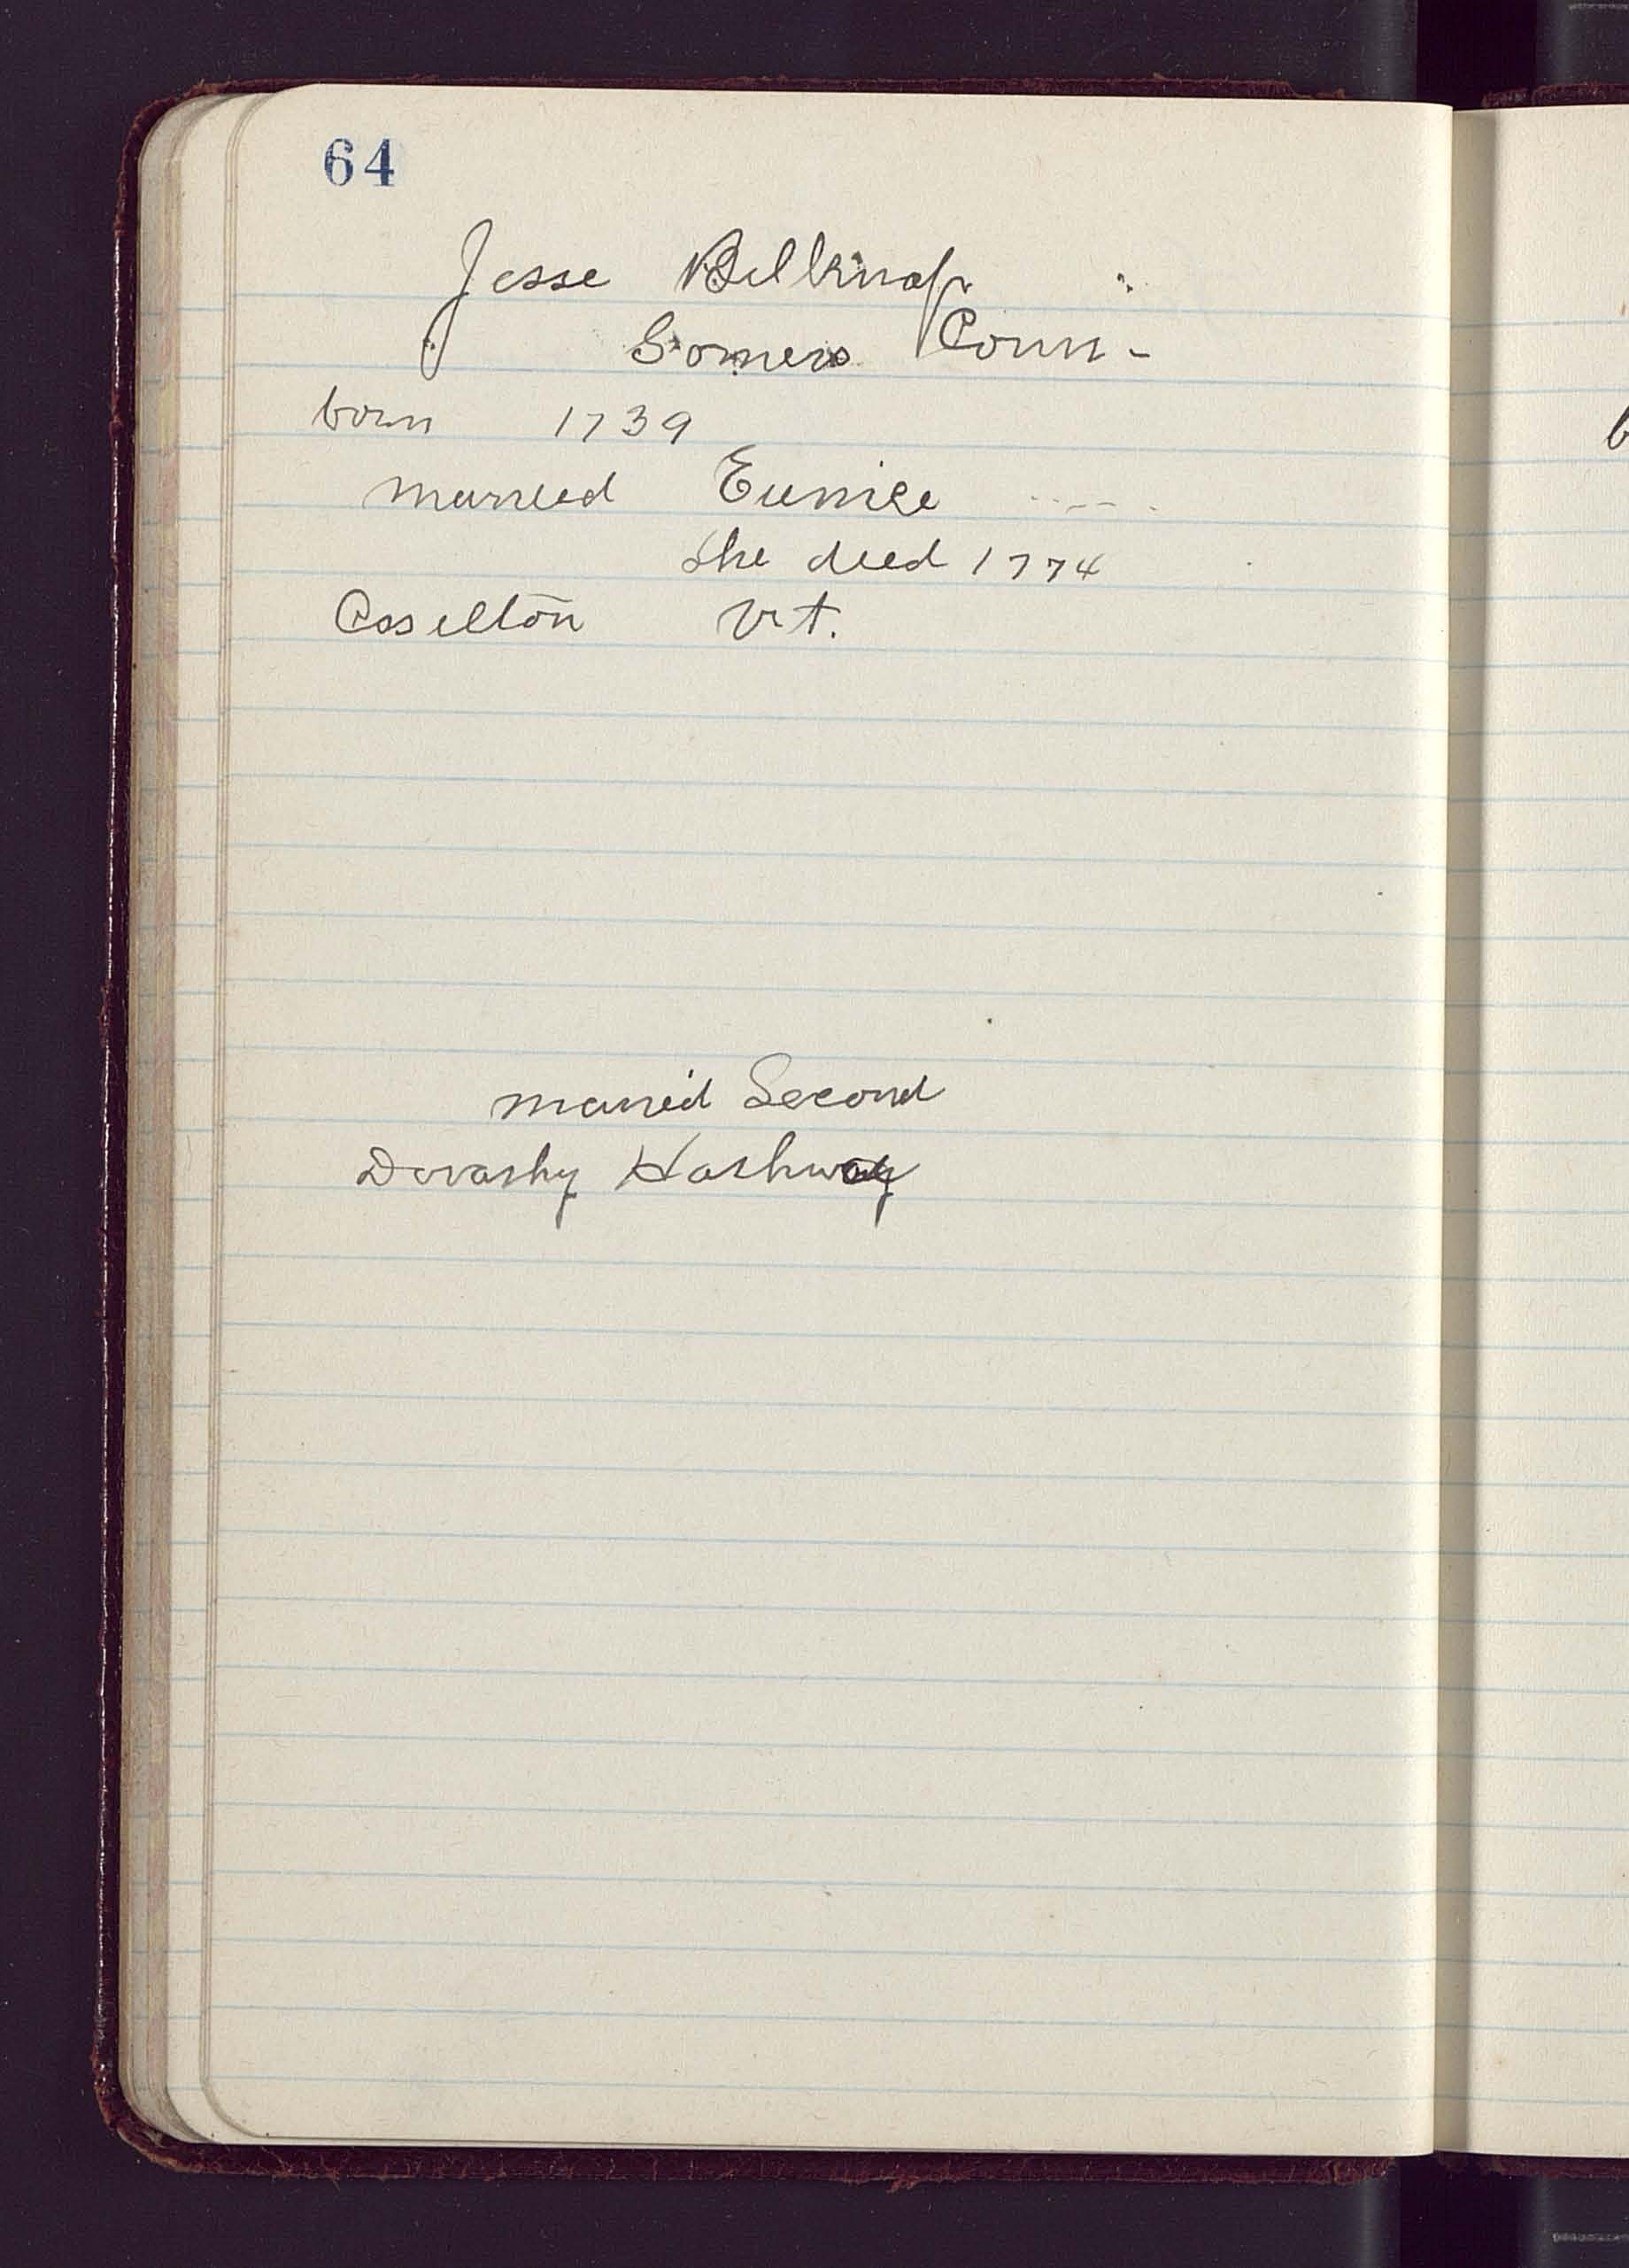 64
Jesse Belknap
Somers Conn -
born 1739
married Eunice - - -
She died 1774
Caselton Vt.
married Second
Dorathy Hathway